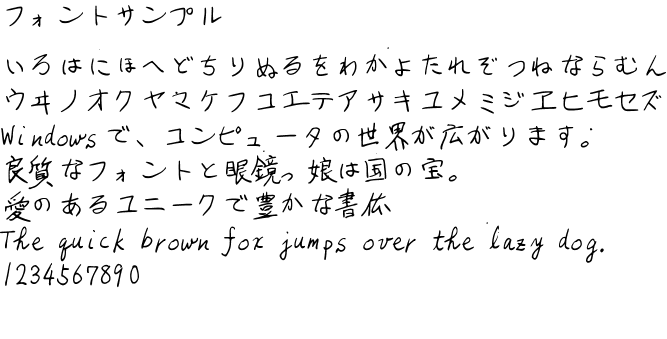 フォントサンプル
いろはにほへどちりぬるをわかよたれぞつねならむん
ウヰノオクヤマケフコエテアサキユメミジヱヒモセズ
Windowsで、コンピュータの世界が広がります。
良質なフォントと眼鏡っ娘は国の宝。
愛のあるユニークで豊かな書体
The quick brown fox jumps over the lazy dog.
1234567890